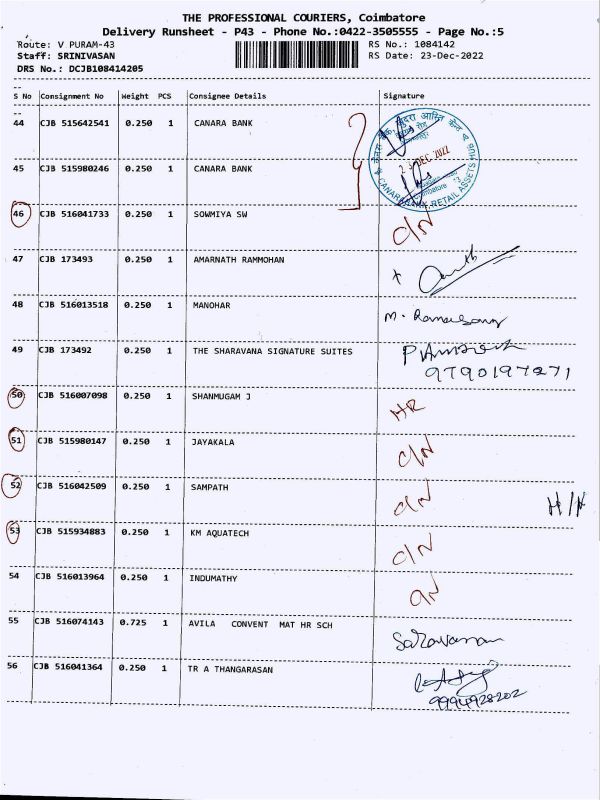 THE PROFESSIONAL COURIERS, Coimbatore
Delivery Runsheet - P43 - Phone No.:0422-3505555 - Page No.:5
Route: V PURAM-43
RS No.: 1084142
Staff: SRINIVASAN
RS Date: 23-Dec-2022
DRS No.: DCJB108414205
S No Consignment No Weight PCS Consignee Details Signature
44 CJB 515642541 0.250 1 CANARA BANK
23 DEC 2022
CANARA BANK, RETAIL ASSETS HUB
45 CJB 515980246 0.250 1 CANARA BANK
46 CJB 516041733 0.250 1 SOWMIYA SW D/N
47 CJB 173493 0.250 1 AMARNATH RAMMOHAN
48 CJB 516013518 0.250 1 MANOHAR M.
49 CJB 173492 0.250 1 THE SHARAVANA SIGNATURE SUITES
9790197271
50 CJB 516007098 0.250 1 SHANMUGAM J HR
51 CJB 515980147 0.250 1 JAYAKALA D/N
52 CJB 516042509 0.250 1 SAMPATH D/N
53 CJB 515934883 0.250 1 KM AQUATECH D/N
54 CJB 516013964 0.250 1 INDUMATHY
55 CJB 516074143 0.725 1 AVILA CONVENT MAT HR SCH Saravanan
56 CJB 516041364 0.250 1 TR A THANGARASAN
9994928202